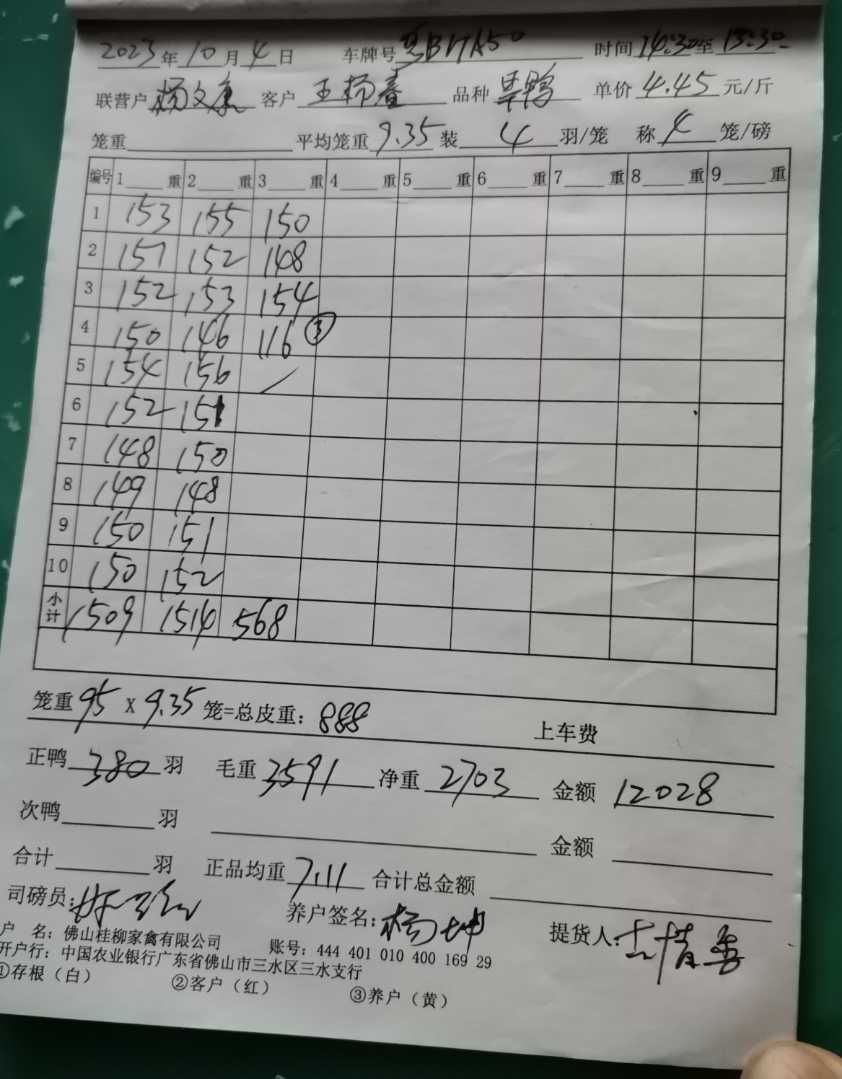 2023年10月4日 车牌号 粤B17A50 时间 14:30至15:30
联营户 杨文 客户 王杨春 品种 旱鸭 单价 4.45 元/斤
笼重 平均笼重 9.35 装 4 羽/笼 称 4 笼/磅
编号 1 重 2 重 3 重 4 重 5 重 6 重 7 重 8 重 9 重
1 153 155 150
2 151 152 148
3 152 153 154
4 150 146 116 ③
5 154 156
6 152 151
7 148 150
8 149 148
9 150 151
10 150 152
小计 1509 1514 568
笼重 95 X 9.35 笼=总皮重: 888 上车费
正鸭 380 羽 毛重 3591 净重 2703 金额 12028
次鸭 羽 金额
合计 羽 正品均重 7.11 合计总金额
司磅员: 养户签名: 杨坤 提货人:
户 名: 佛山桂柳家禽有限公司 账号: 444 401 010 400 169 29
开户行: 中国农业银行广东省佛山市三水区三水支行
①存根（白） ②客户（红） ③养户（黄）